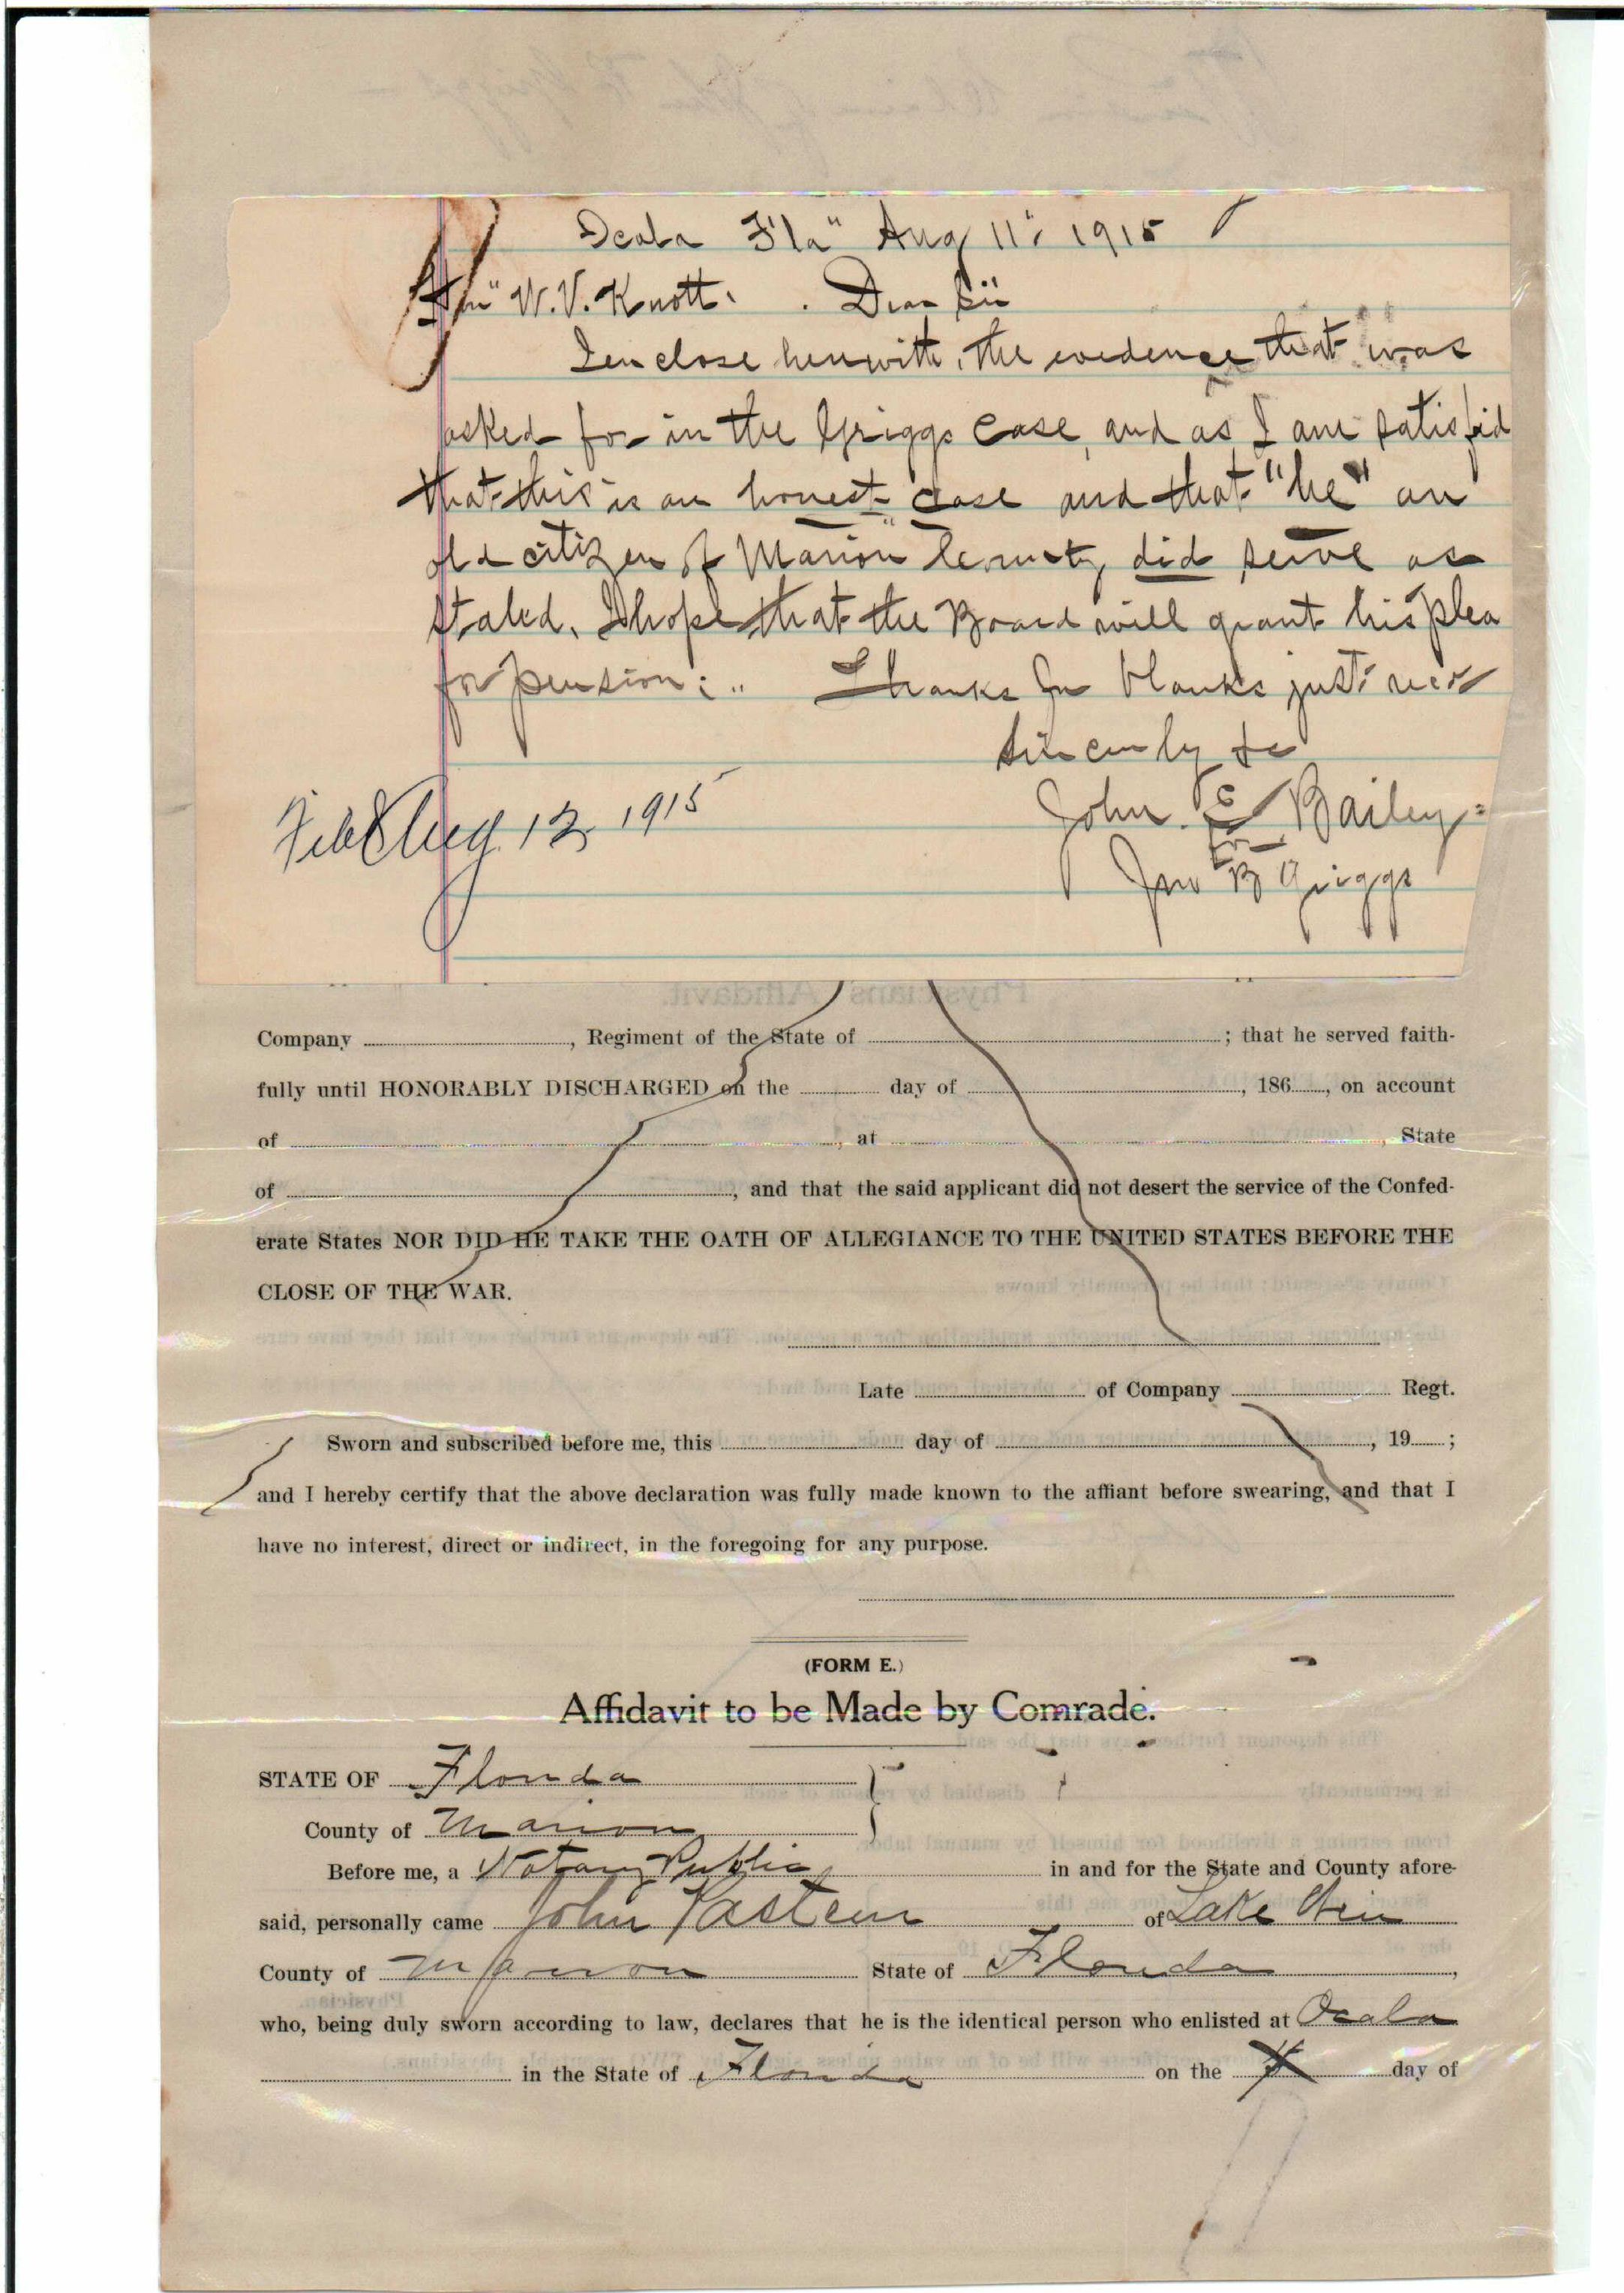 Ocala Fla" Aug 11" 1915
Hon" W. V. Knott. Dear Sir
I enclose herewith, the evidence that was
asked for in the Griggs case, and as I am satisfid
that this is an honest case and that "he" an
old citizen of Marion County, did serve as
stated, I hope that the Board will grant his plea
for pension: " Thanks for blanks just recd
Sincerely &c
John. E Bailey
for
Jno B Griggs
Filed Aug 12, 1915
Physicians Affidavit.
Company , Regiment of the State of ; that he served faith-
fully until HONORABLY DISCHARGED on the day of , 186 , on account
of , at , State
of , and that the said applicant did not desert the service of the Confed-
erate States NOR DID HE TAKE THE OATH OF ALLEGIANCE TO THE UNITED STATES BEFORE THE
CLOSE OF THE WAR.
Late of Company Regt.
Sworn and subscribed before me, this day of , 19 ;
and I hereby certify that the above declaration was fully made known to the affiant before swearing, and that I
have no interest, direct or indirect, in the foregoing for any purpose.
(FORM E.)
Affidavit to be Made by Comrade.
STATE OF Florida
County of Marion
Before me, a Notary Public in and for the State and County afore-
said, personally came John Pasteur of Lake Weir
County of Marion State of Florida ,
who, being duly sworn according to law, declares that he is the identical person who enlisted at Ocala
in the State of Florida on the day of